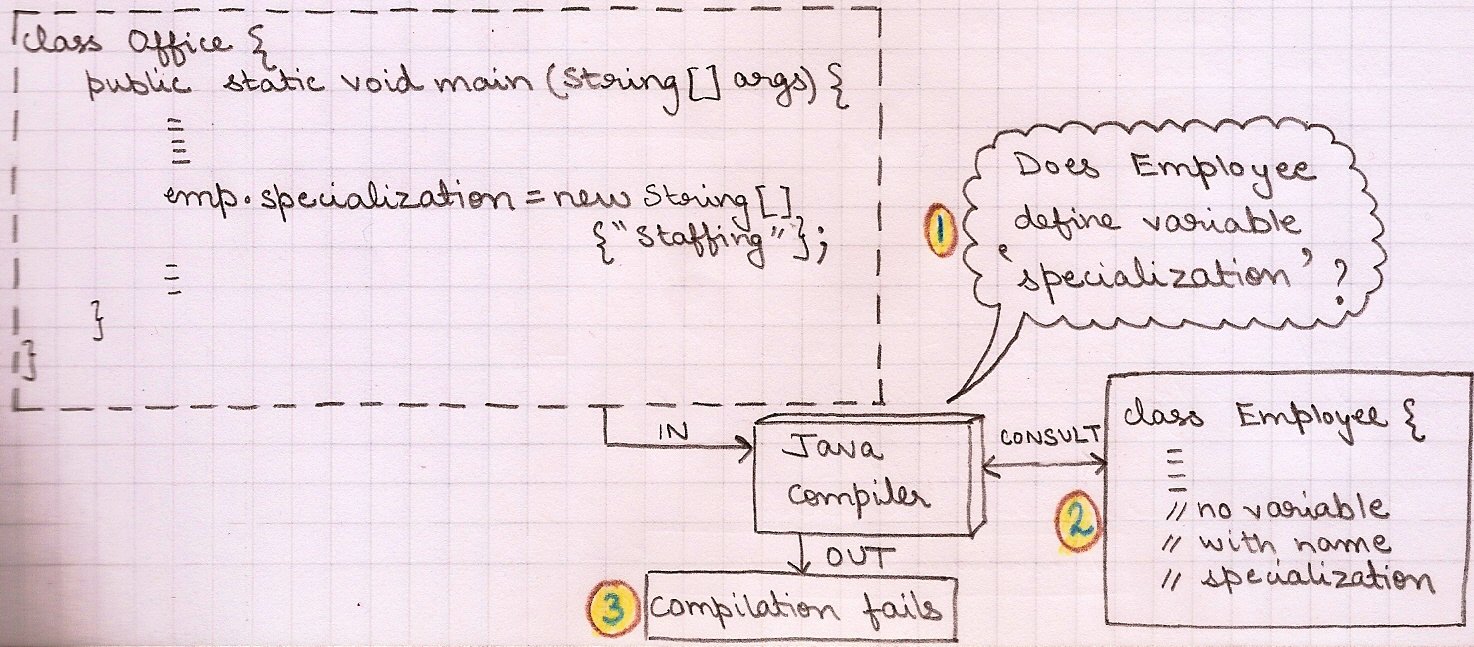 class Office {
public static void main (String[] args) {
emp.specialization = new String[]
{"Staffing"};
}
}
1
Does Employee
define variable
'specialization' ?
IN
Java
compiler
CONSULT
2
class Employee {
// no variable
// with name
// specialization
OUT
3
compilation fails